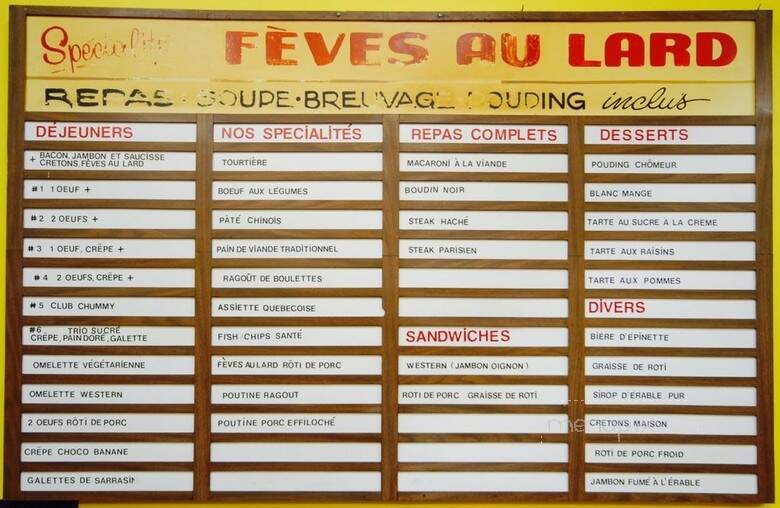 Specialité FÈVES AU LARD
REPAS · SOUPE · BREUVAGE POUDING inclus
DÉJEUNERS
+ BACON, JAMBON ET SAUCISSE
CRETONS, FÈVES AU LARD
#1 1 OEUF +
#2 2 OEUFS +
#3 1 OEUF, CRÊPE +
#4 2 OEUFS, CRÊPE +
#5 CLUB CHUMMY
#6 TRIO SUCRÉ
CRÊPE, PAIN DORÉ, GALETTE
OMELETTE VÉGÉTARIENNE
OMELETTE WESTERN
2 OEUFS RÔTI DE PORC
CRÊPE CHOCO BANANE
GALETTES DE SARRASIN
NOS SPECIALITÉS
TOURTIÈRE
BOEUF AUX LÉGUMES
PÂTÉ CHINOIS
PAIN DE VIANDE TRADITIONNEL
RAGOÛT DE BOULETTES
ASSIETTE QUEBECOISE
FISH CHIPS SANTÉ
FÈVES AU LARD RÔTI DE PORC
POUTINE RAGOUT
POUTINE PORC EFFILOCHÉ
REPAS COMPLETS
MACARONI À LA VIANDE
BOUDIN NOIR
STEAK HACHÉ
STEAK PARISIEN
SANDWICHES
WESTERN (JAMBON OIGNON)
ROTI DE PORC GRAISSE DE ROTI
DESSERTS
POUDING CHÔMEUR
BLANC MANGE
TARTE AU SUCRE À LA CREME
TARTE AUX RAISINS
TARTE AUX POMMES
DIVERS
BIÈRE D'ÉPINETTE
GRAISSE DE ROTI
SIROP D'ÉRABLE PUR
CRETONS MAISON
ROTI DE PORC FROID
JAMBON FUMÉ À L'ÉRABLE